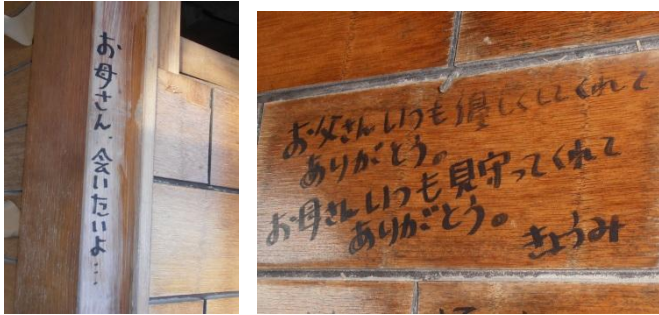 お母さん、会いたいよ…
お父さんいつも優しくしてくれて
ありがとう。
お母さんいつも見守ってくれて
ありがとう。
きょうみ